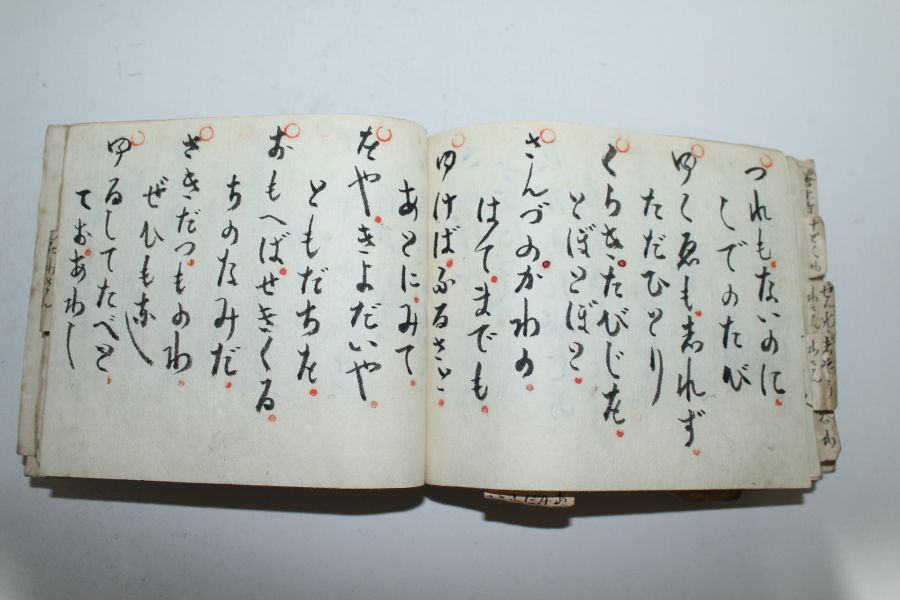 つれもないのに
しでのたび
ゆくゑもしれず
ただひとり
くらきたびじを
とぼとぼと
さんづのかわの
はてまでも
ゆけばふるさと
あとにみて
をやきよだいや
ともだちを
おもへばせきくる
ちのなみだ
さきだつものわ
ぜひもなし
ゆるしてたべと
ておあわし